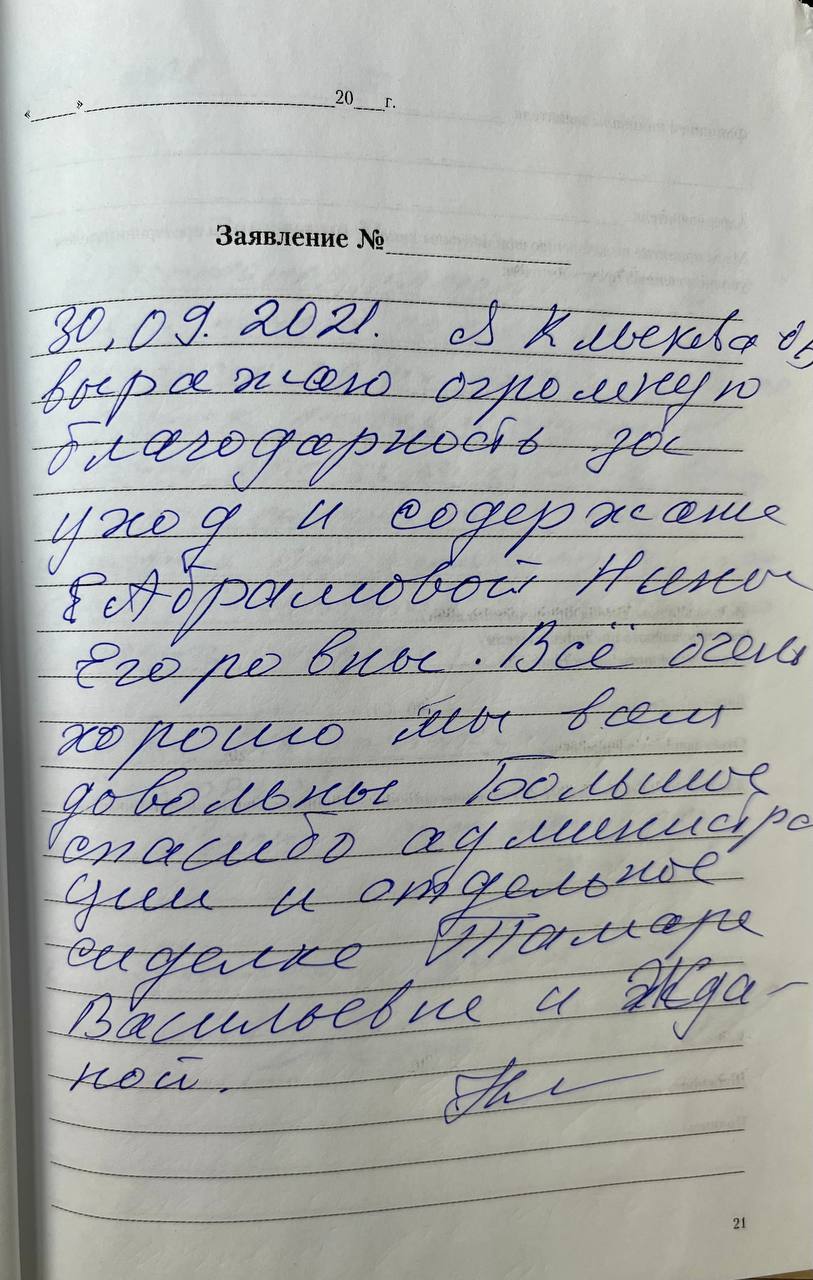 «____»____________________20___г.
Заявление №____________
30.09.2021. Я
выражаю огромную
благодарность за
уход и содержание
Абрамовой Нины
Егоровны. Всё очень
хорошо мы всем
довольны Большое
спасибо администра
ции и отдельное
сиделке Тамаре
Васильевне и Жда-
ной.
21